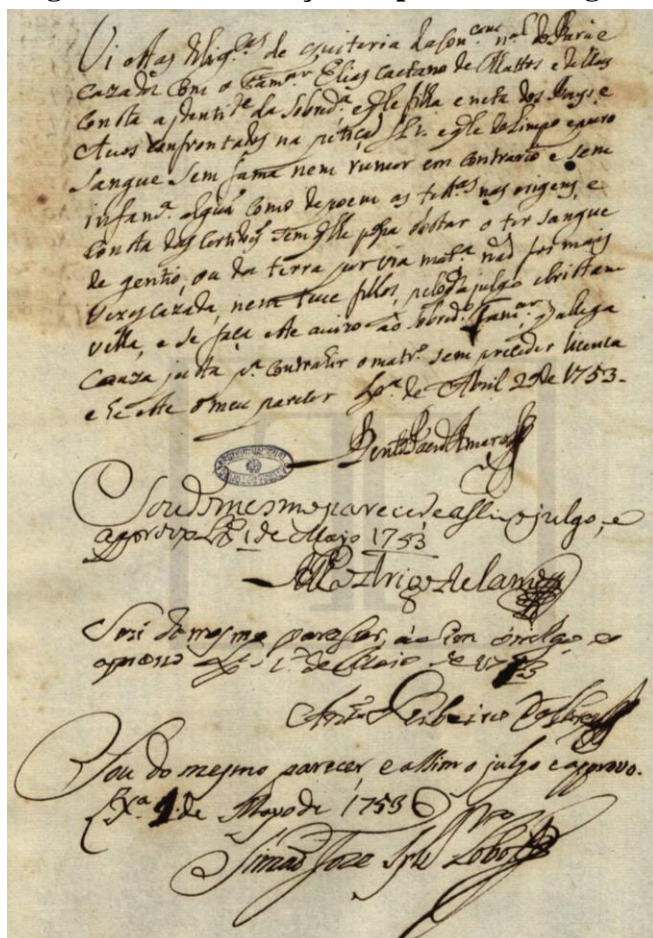 Vi estas dilig.as de Quiteria da Con.cam n.al do Pará e
cazada com o Fam.ar Elias Caetano de Mattos e dellas
consta a identi.de da sobred.a e q̃ he filha e neta dos Pays e
Avos confrontados na petiçaõ e q̃ he de limpo e puro
sangue sem fama nem rumor em contrario e sem
infam.a algũa como depoem as test.as nas origens, e
consta das certidoẽs sem q̃ lhe possa obstar o ter sangue
de gentio, ou da terra por via mat.a naõ foi mais
vezes cazada, nem teve filhos,
e se faça este avizo ao sobred.o Fam.ar, allega
cauza justa p.a contrahir o matr.o sem preceder licenca
e he este o meu parecer Lx.a de Abril 29 de 1753.
Bento Paes do Amaral
Sou do mesmo parecer e assim o julgo, e
approvo Lx.a 1 de Mayo 1753
Sou do mesmo parecer, e assim o julgo, e
aprovo Lx.a 1.o de Maio de 1753
Ribeiro
Sou do mesmo parecer e assim o julgo e approvo.
Lx.a 1. de Mayo de 1753
Simaõ Joze Lobo